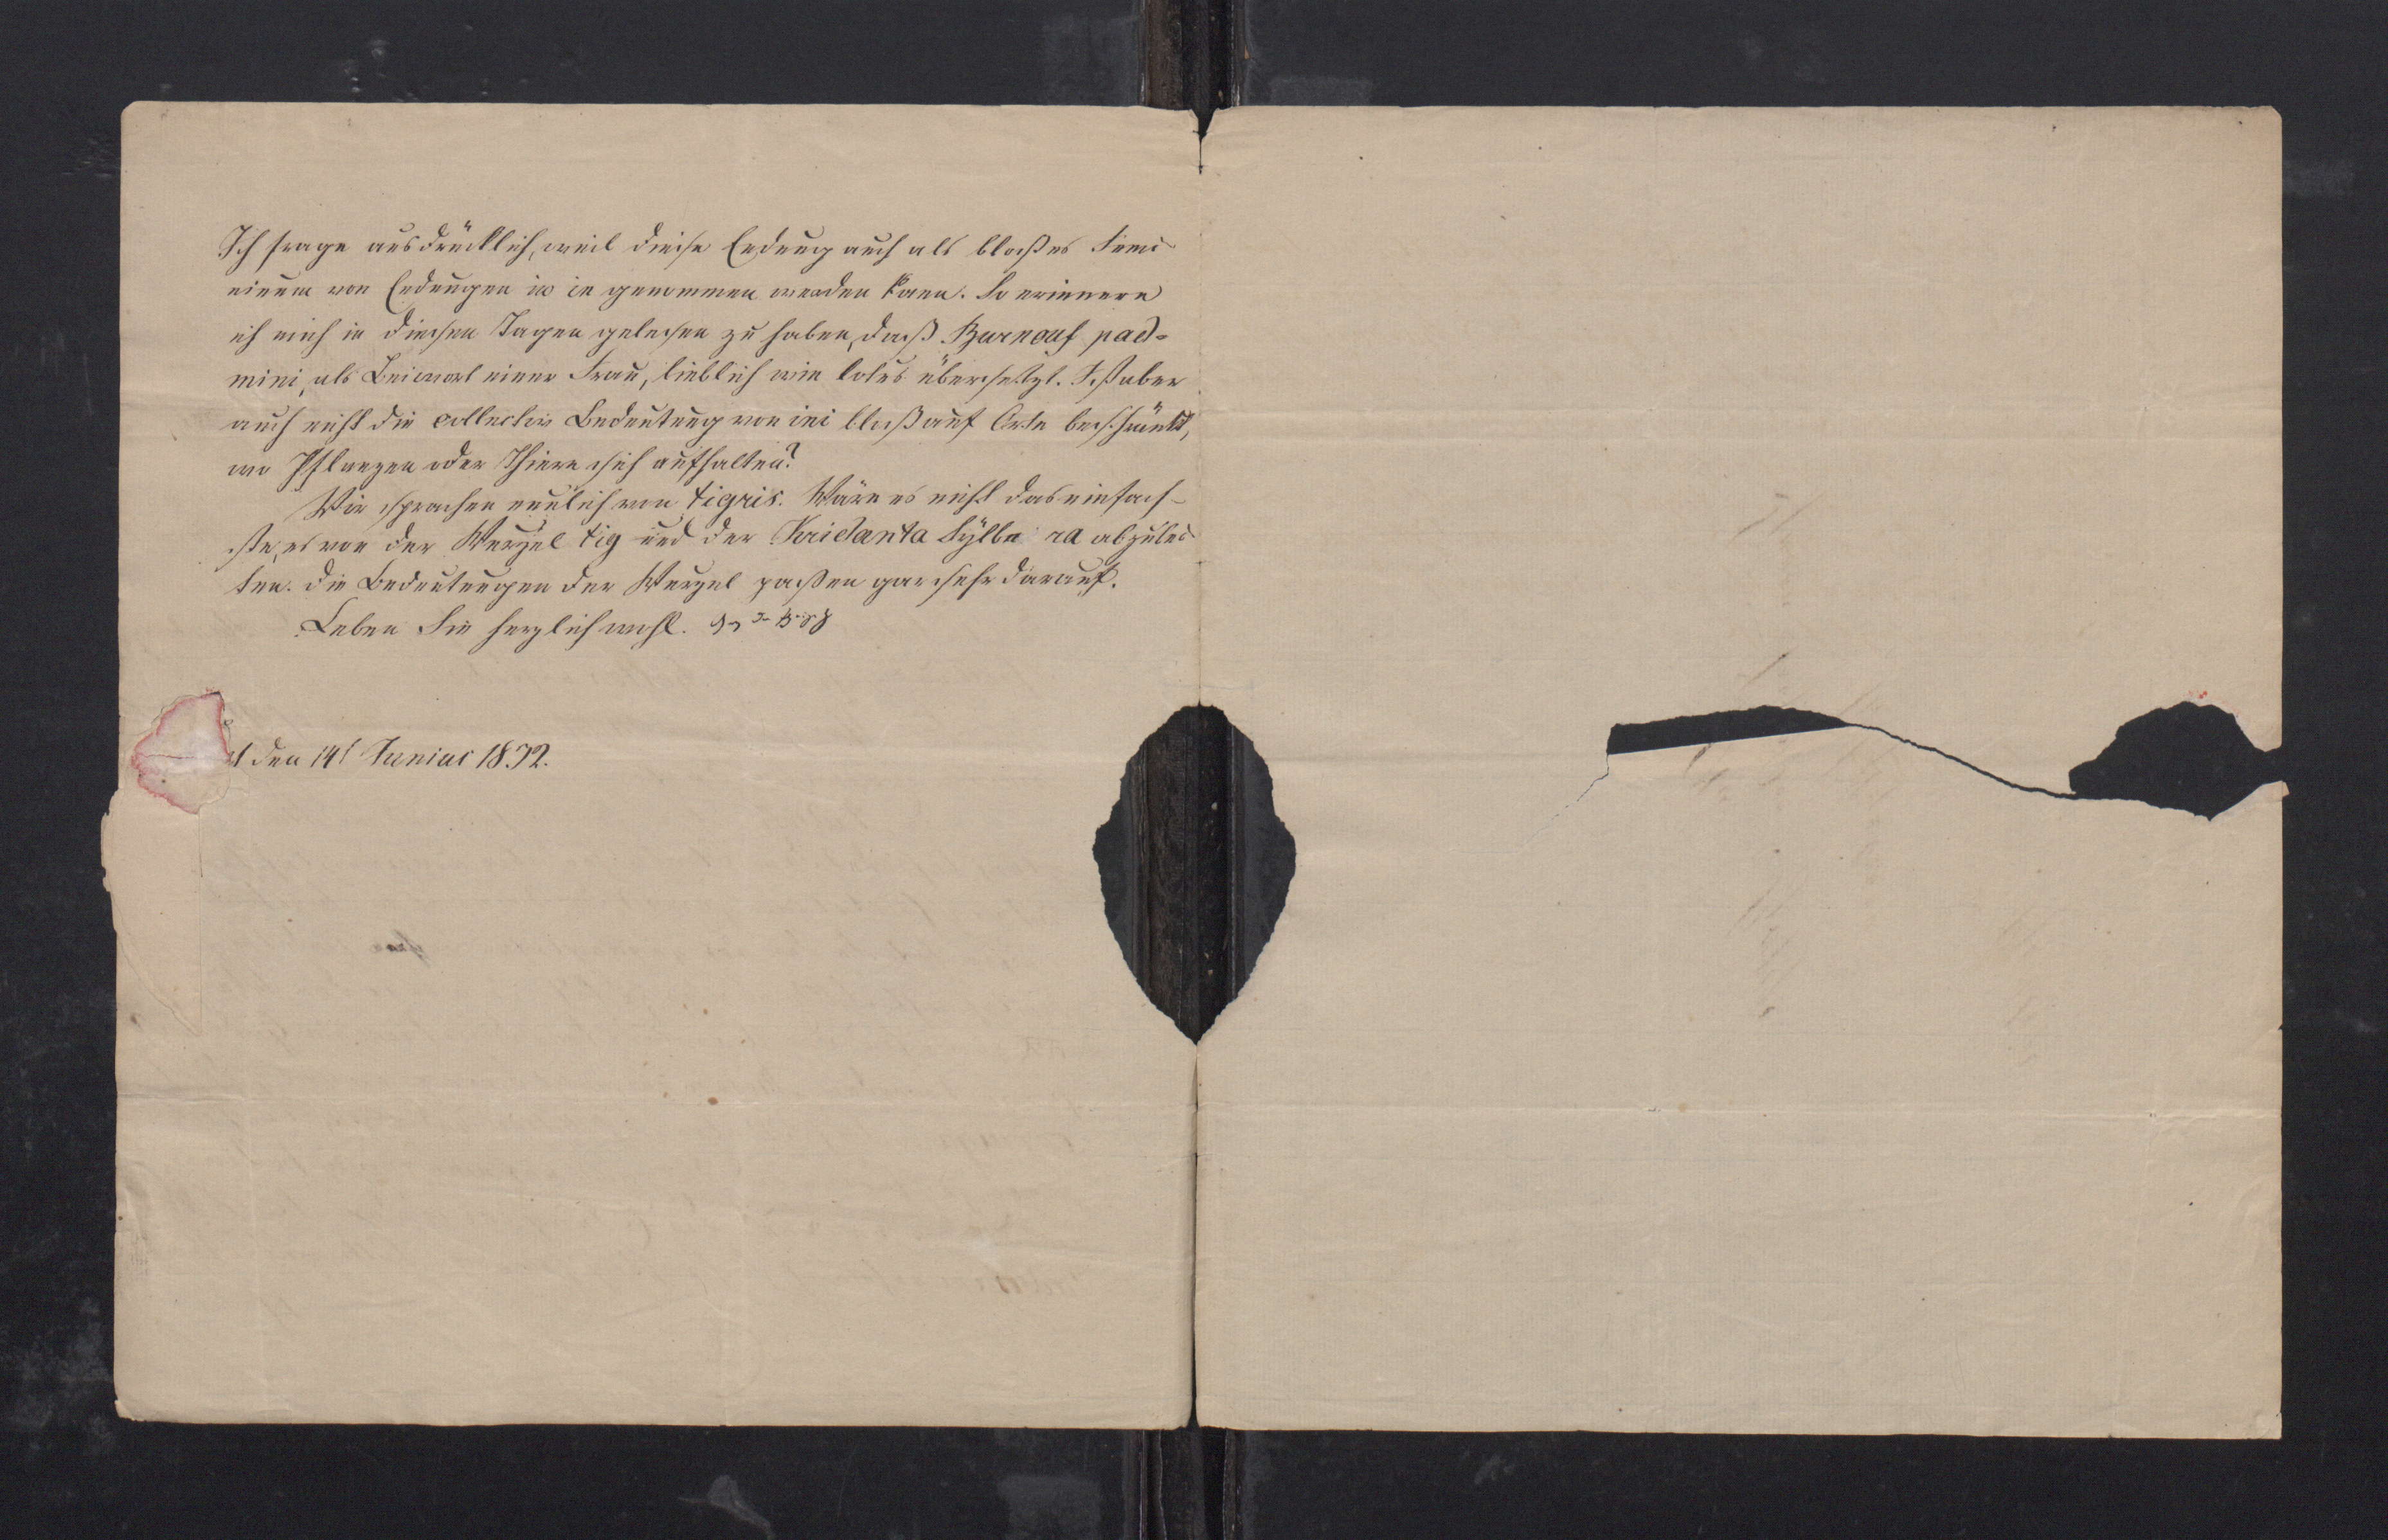 Ich frage ausdrücklich, weil diese Endung auch als bloßes Femi-
ninum von Endungen in in genommen werden kann. So erinnere
ich mich in diesen Tagen gelesen zu haben, daß Burnouf pad-
mini, als Beiwort einer Frau, lieblich wie lotus übersetzt. Ist aber
auch nicht die collective Bedeutung von ini bloß auf Orte beschränkt,
wo Pflanzen oder Thiere sich aufhalten?
Wir sprachen neulich von tigris. Wäre es nicht das einfach-
ste, es von der Wurzel tig und der Kridanta Sylbe ra abzulei-
ten. Die Bedeutungen der Wurzel paßen gar sehr darauf.
Leben Sie herzlich wohl.
den 14t Junius 1832.